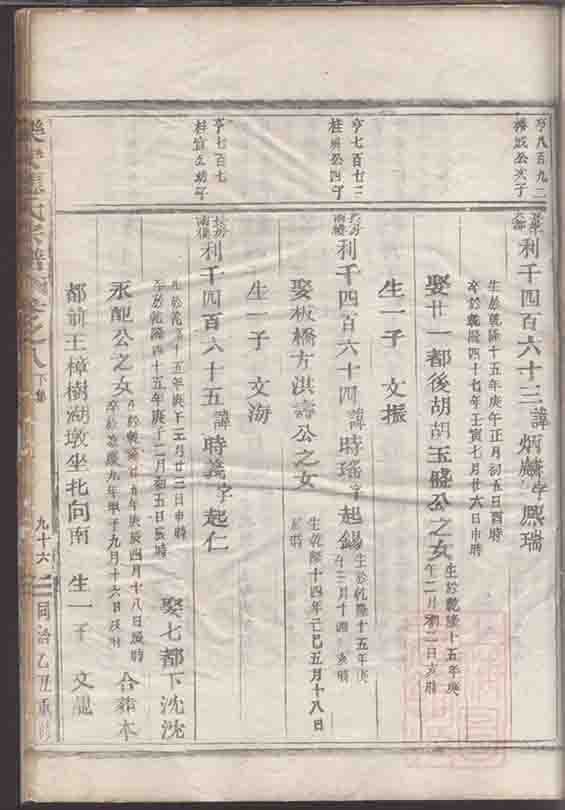 亨八百九二
公次子
利千四百六十三諱炳麟字熙瑞
生於乾隆十五年庚午正月初五日酉時
卒於乾隆四十七年壬寅七月廿六日申時
娶廿一都後胡胡玉盛公之女
生於乾隆十五年庚
午二月初二日亥時
生一子 文振
亨七百七二
桂 公四子
長房
利千四百六十四諱時瑤字起錫
生於乾隆十五年庚
午三月十四 時
娶板橋方洪壽公之女
生乾隆十四年己巳五月十八日
時
生一子 文海
亨七百七
桂 公幼子
長房
利千四百六十五諱時 字起仁
生於乾隆十五年庚午三月廿二日申時
卒於乾隆四十五年庚子二月初五日辰時
娶七都下沈沈
永配公之女
生於乾隆廿五年庚辰四月十八日辰時
卒於嘉慶九年甲子九月十六日 時
合葬本
都前王樟樹湖墩坐北向南 生一子 文
氏宗譜 卷之八下集
九十六
同治乙丑重修